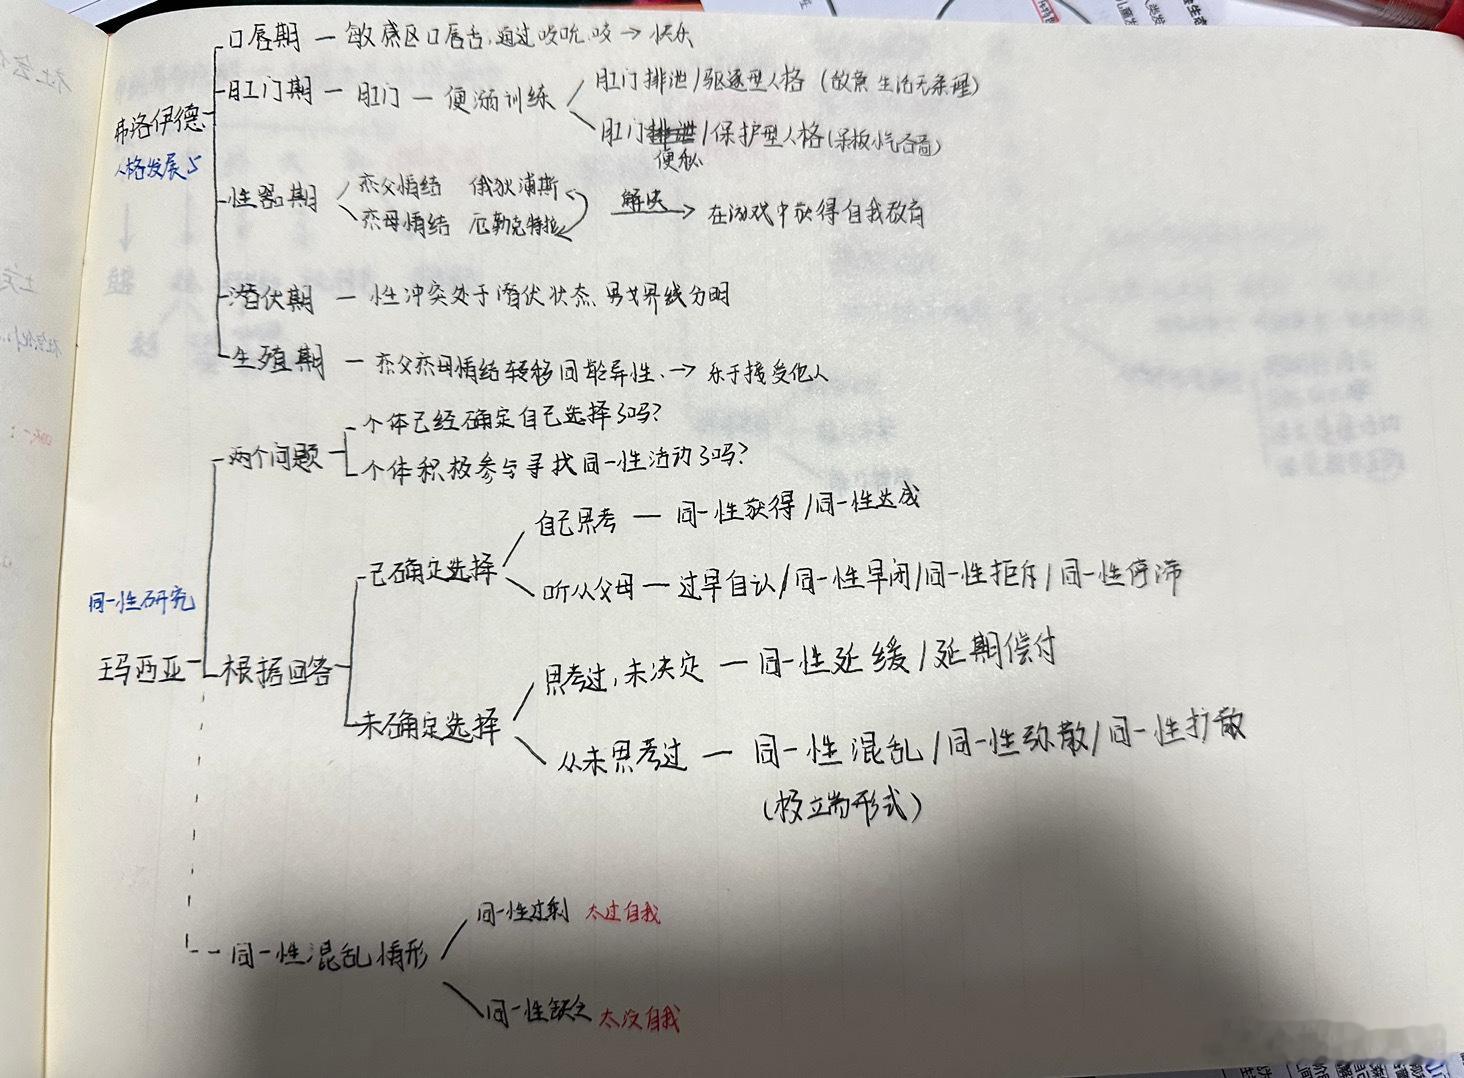 口唇期 — 敏感区口唇舌,通过吸吮、咬 → 快乐
弗洛伊德
人格发展5
肛门期 — 肛门 — 便溺训练
肛门排泄/驱逐型人格(放肆 生活无条理)
肛门便秘/保护型人格(呆板小气吝啬)
性器期
恋父情结 俄狄浦斯
恋母情结 厄勒克特拉
解决 → 在游戏中获得自我教育
潜伏期 — 性冲突处于潜伏状态、男女界线分明
生殖期 — 恋父恋母情结转移同龄异性、→ 乐于接受他人
同一性研究
玛西亚
两个问题
个体已经确定自己选择了吗?
个体积极参与寻找同一性活动了吗?
根据回答
已确定选择
自己思考 — 同一性获得/同一性达成
听从父母 — 过早自认/同一性早闭/同一性拒斥/同一性停滞
未确定选择
思考过,未决定 — 同一性延缓/延期偿付
从未思考过 — 同一性混乱/同一性弥散/同一性扩散
(极端形式)
同一性混乱情形
同一性过剩 太过自我
同一性缺乏 太没自我